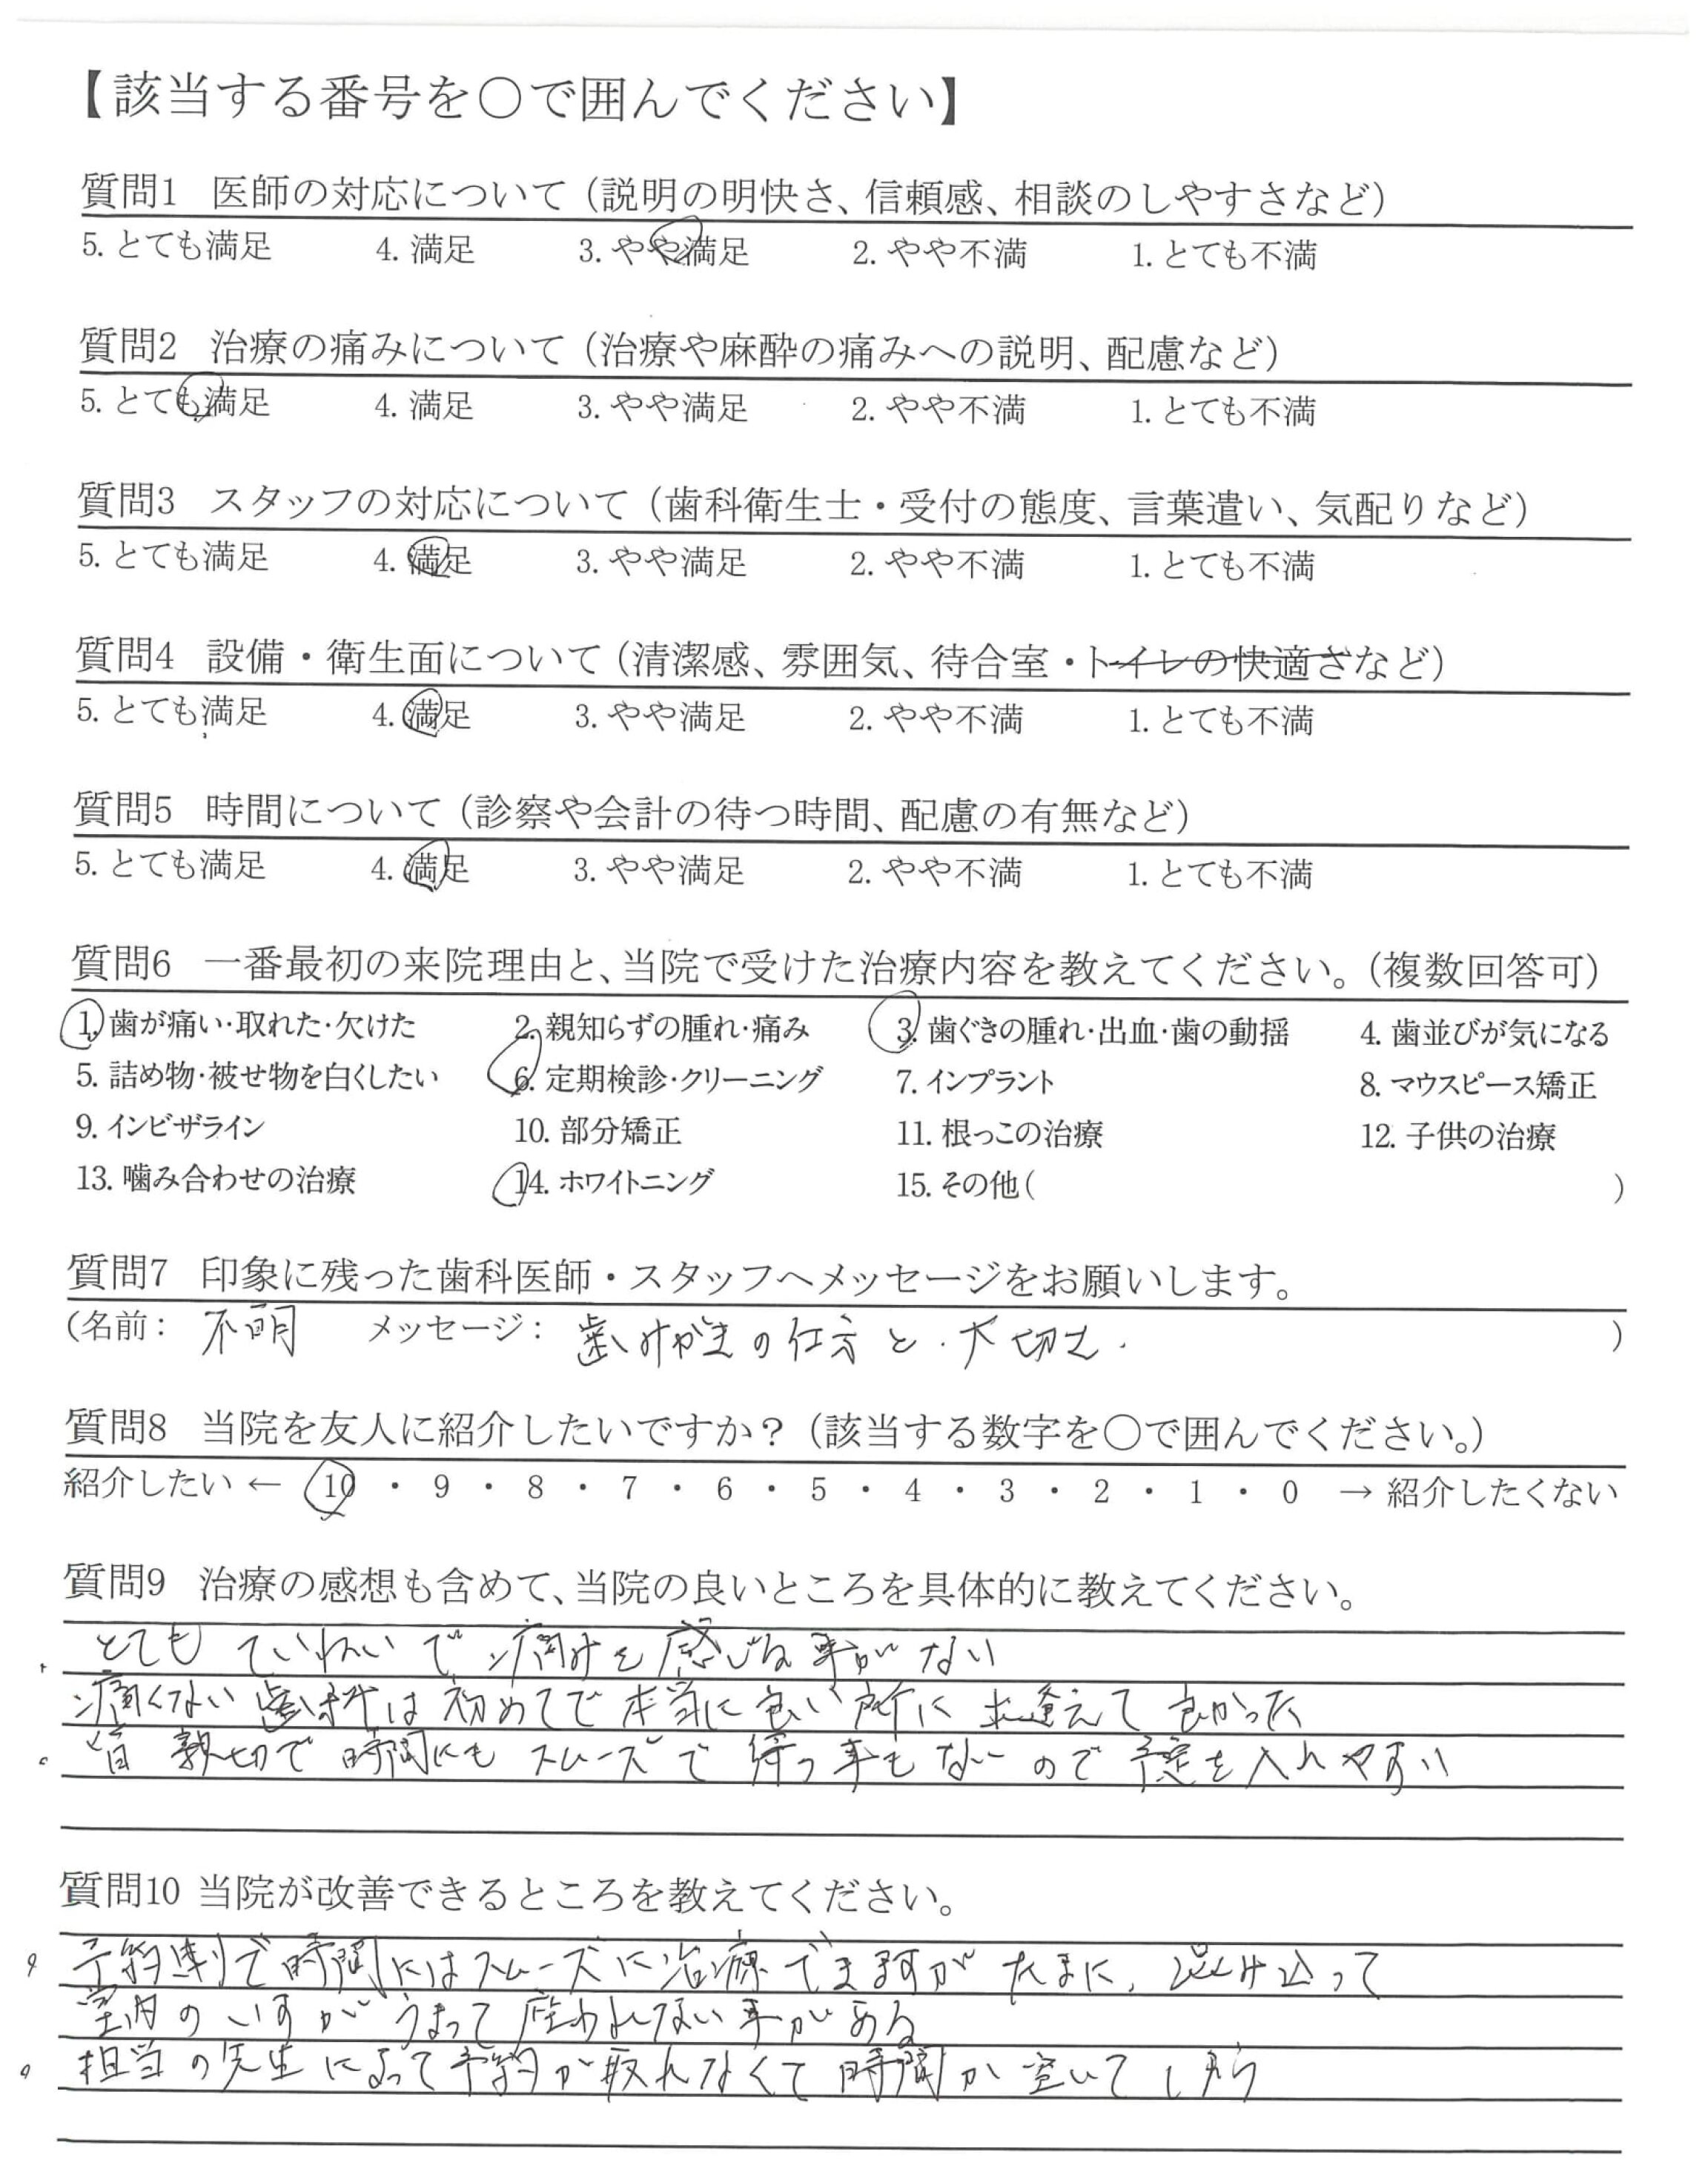 【該当する番号を〇で囲んでください】
質問1 医師の対応について（説明の明快さ、信頼感、相談のしやすさなど）
5. とても満足 4. 満足 3. やや満足 2. やや不満 1. とても不満
質問2 治療の痛みについて（治療や麻酔の痛みへの説明、配慮など）
5. とても満足 4. 満足 3. やや満足 2. やや不満 1. とても不満
質問3 スタッフの対応について（歯科衛生士・受付の態度、言葉遣い、気配りなど）
5. とても満足 4. 満足 3. やや満足 2. やや不満 1. とても不満
質問4 設備・衛生面について（清潔感、雰囲気、待合室・トイレの快適さなど）
5. とても満足 4. 満足 3. やや満足 2. やや不満 1. とても不満
質問5 時間について（診察や会計の待つ時間、配慮の有無など）
5. とても満足 4. 満足 3. やや満足 2. やや不満 1. とても不満
質問6 一番最初の来院理由と、当院で受けた治療内容を教えてください。（複数回答可）
1. 歯が痛い・取れた・欠けた 2. 親知らずの腫れ・痛み 3. 歯ぐきの腫れ・出血・歯の動揺 4. 歯並びが気になる
5. 詰め物・被せ物を白くしたい 6. 定期検診・クリーニング 7. インプラント 8. マウスピース矯正
9. インビザライン 10. 部分矯正 11. 根っこの治療 12. 子供の治療
13. 噛み合わせの治療 14. ホワイトニング 15. その他（ ）
質問7 印象に残った歯科医師・スタッフへメッセージをお願いします。
（名前： 不明 メッセージ： 歯みがきの仕方と・大切さ. ）
質問8 当院を友人に紹介したいですか？（該当する数字を〇で囲んでください。）
紹介したい ← 10 ・ 9 ・ 8 ・ 7 ・ 6 ・ 5 ・ 4 ・ 3 ・ 2 ・ 1 ・ 0 → 紹介したくない
質問9 治療の感想も含めて、当院の良いところを具体的に教えてください。
とても ていねいで 痛みを感じる事が ない
痛くない 歯科は 初めてで 本当に良い所に 出逢えて 良かった
皆 親切で 時間にも スムーズで 待つ事も ないので 予定を入れやすい
質問10 当院が改善できるところを教えてください。
予約制で時間にはスムーズに治療できますが たまに、混み込って
室内のいすが うまって 座われない事がある
担当の先生によって予約が取れなくて 時間が 空いてしまう